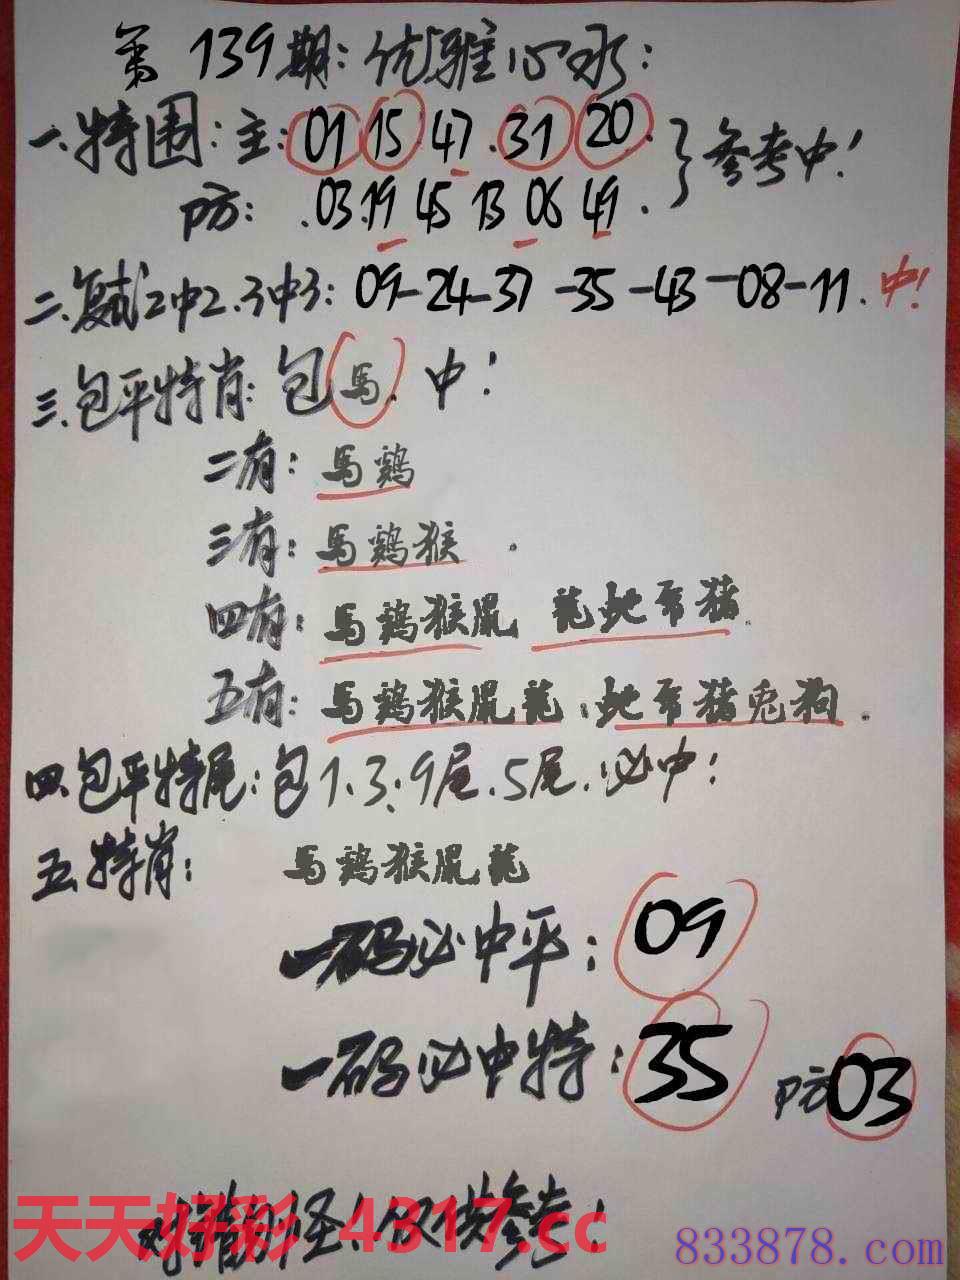 第139期:优雅心水:
一.特围:主:01 15 47.31 20.}参考中!
防:.03.19 45 13 06 49.
二.复试2中2.3中3:09-24-37-35-43-08-11.中!
三.包平特肖:包馬.中!
二有:馬鷄
三有:馬鷄猴.
四有:馬鷄猴鼠 龍蛇 猪.
五有:馬鷄猴鼠龍:蛇 猪兔狗.
四.包平特尾:包1.3:9尾.5尾.必中!
五.特肖:馬鷄猴鼠龍
一码必中平:09
一码必中特:35 防03
对错勿怪!仅供参考!
天天好彩 4317.cc
833878.com